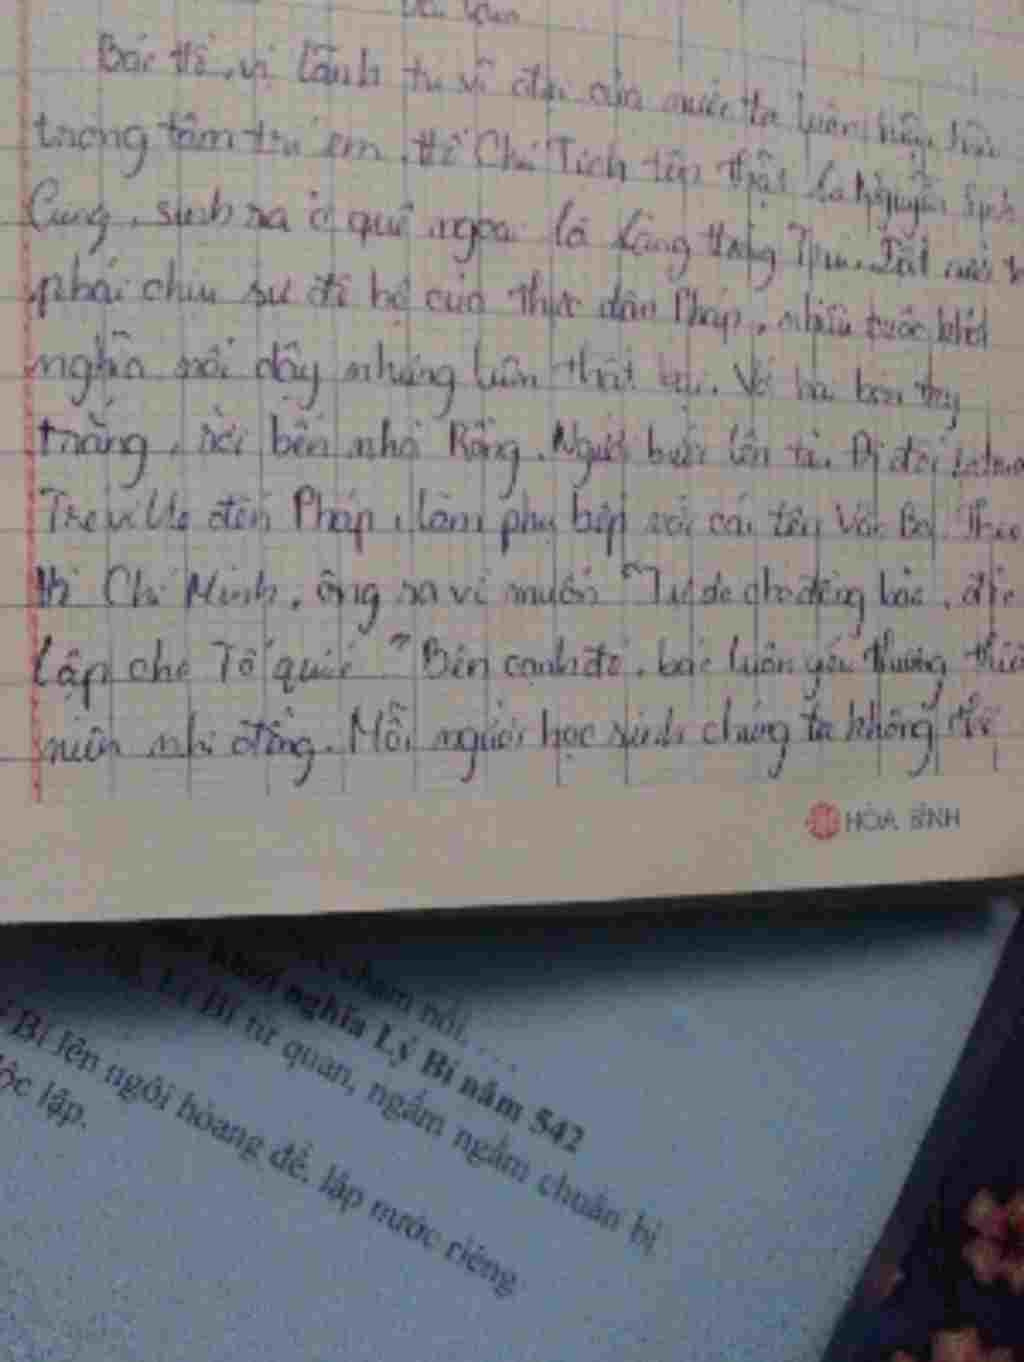 Bác Hồ, vị lãnh tụ vĩ đại của nước ta luôn
trong tâm trí em. Hồ Chí Tịch tên thật là Nguyễn Sinh
Cung, sinh ra ở quê ngoại là làng Hoàng Trù. Đất nước
phải chịu sự đô hộ của thực dân Pháp, nhiều cuộc khởi
nghĩa nổi dậy nhưng luôn thất bại. Với hai bàn tay
trắng, rời bến nhà Rồng. Người bước lên tàu
Treville đến Pháp, làm phụ bếp với cái tên Văn Ba. Theo
Hồ Chí Minh, ông ra vì muốn "Tự do cho đồng bào, độc
lập cho Tổ quốc" Bên cạnh đó, bác luôn yêu thương thiếu
niên nhi đồng. Mỗi người học sinh chúng ta không thể
HÒA BÌNH
chạm nổi, ...
khởi nghĩa Lý Bí năm 542
Lý Bí từ quan, ngấm ngầm chuẩn bị
Bí lên ngôi hoàng đế, lập nước riêng
độc lập.